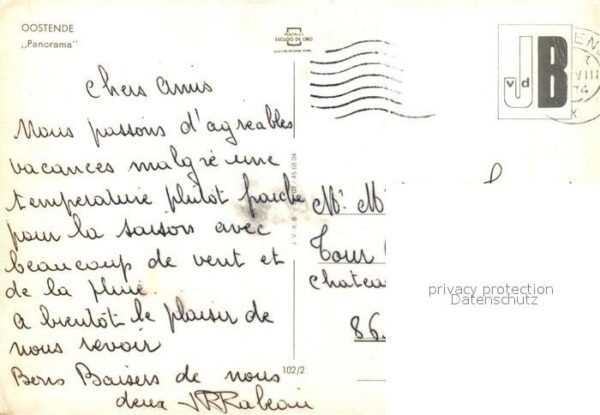 OOSTENDE
„Panorama"
ESCUDO DE ORO
J
B
v d
VIII
74
Chers Amis
Nous passons d'agréables
vacances malgré une
température plutôt fraiche
pour la saison avec
beaucoup de vent et
de la pluie.
A bientôt le plaisir de
nous revoir
Bons Baisers de nous
deux
102/2
Mr. M
Tour
Chatea
86.
privacy protection
Datenschutz